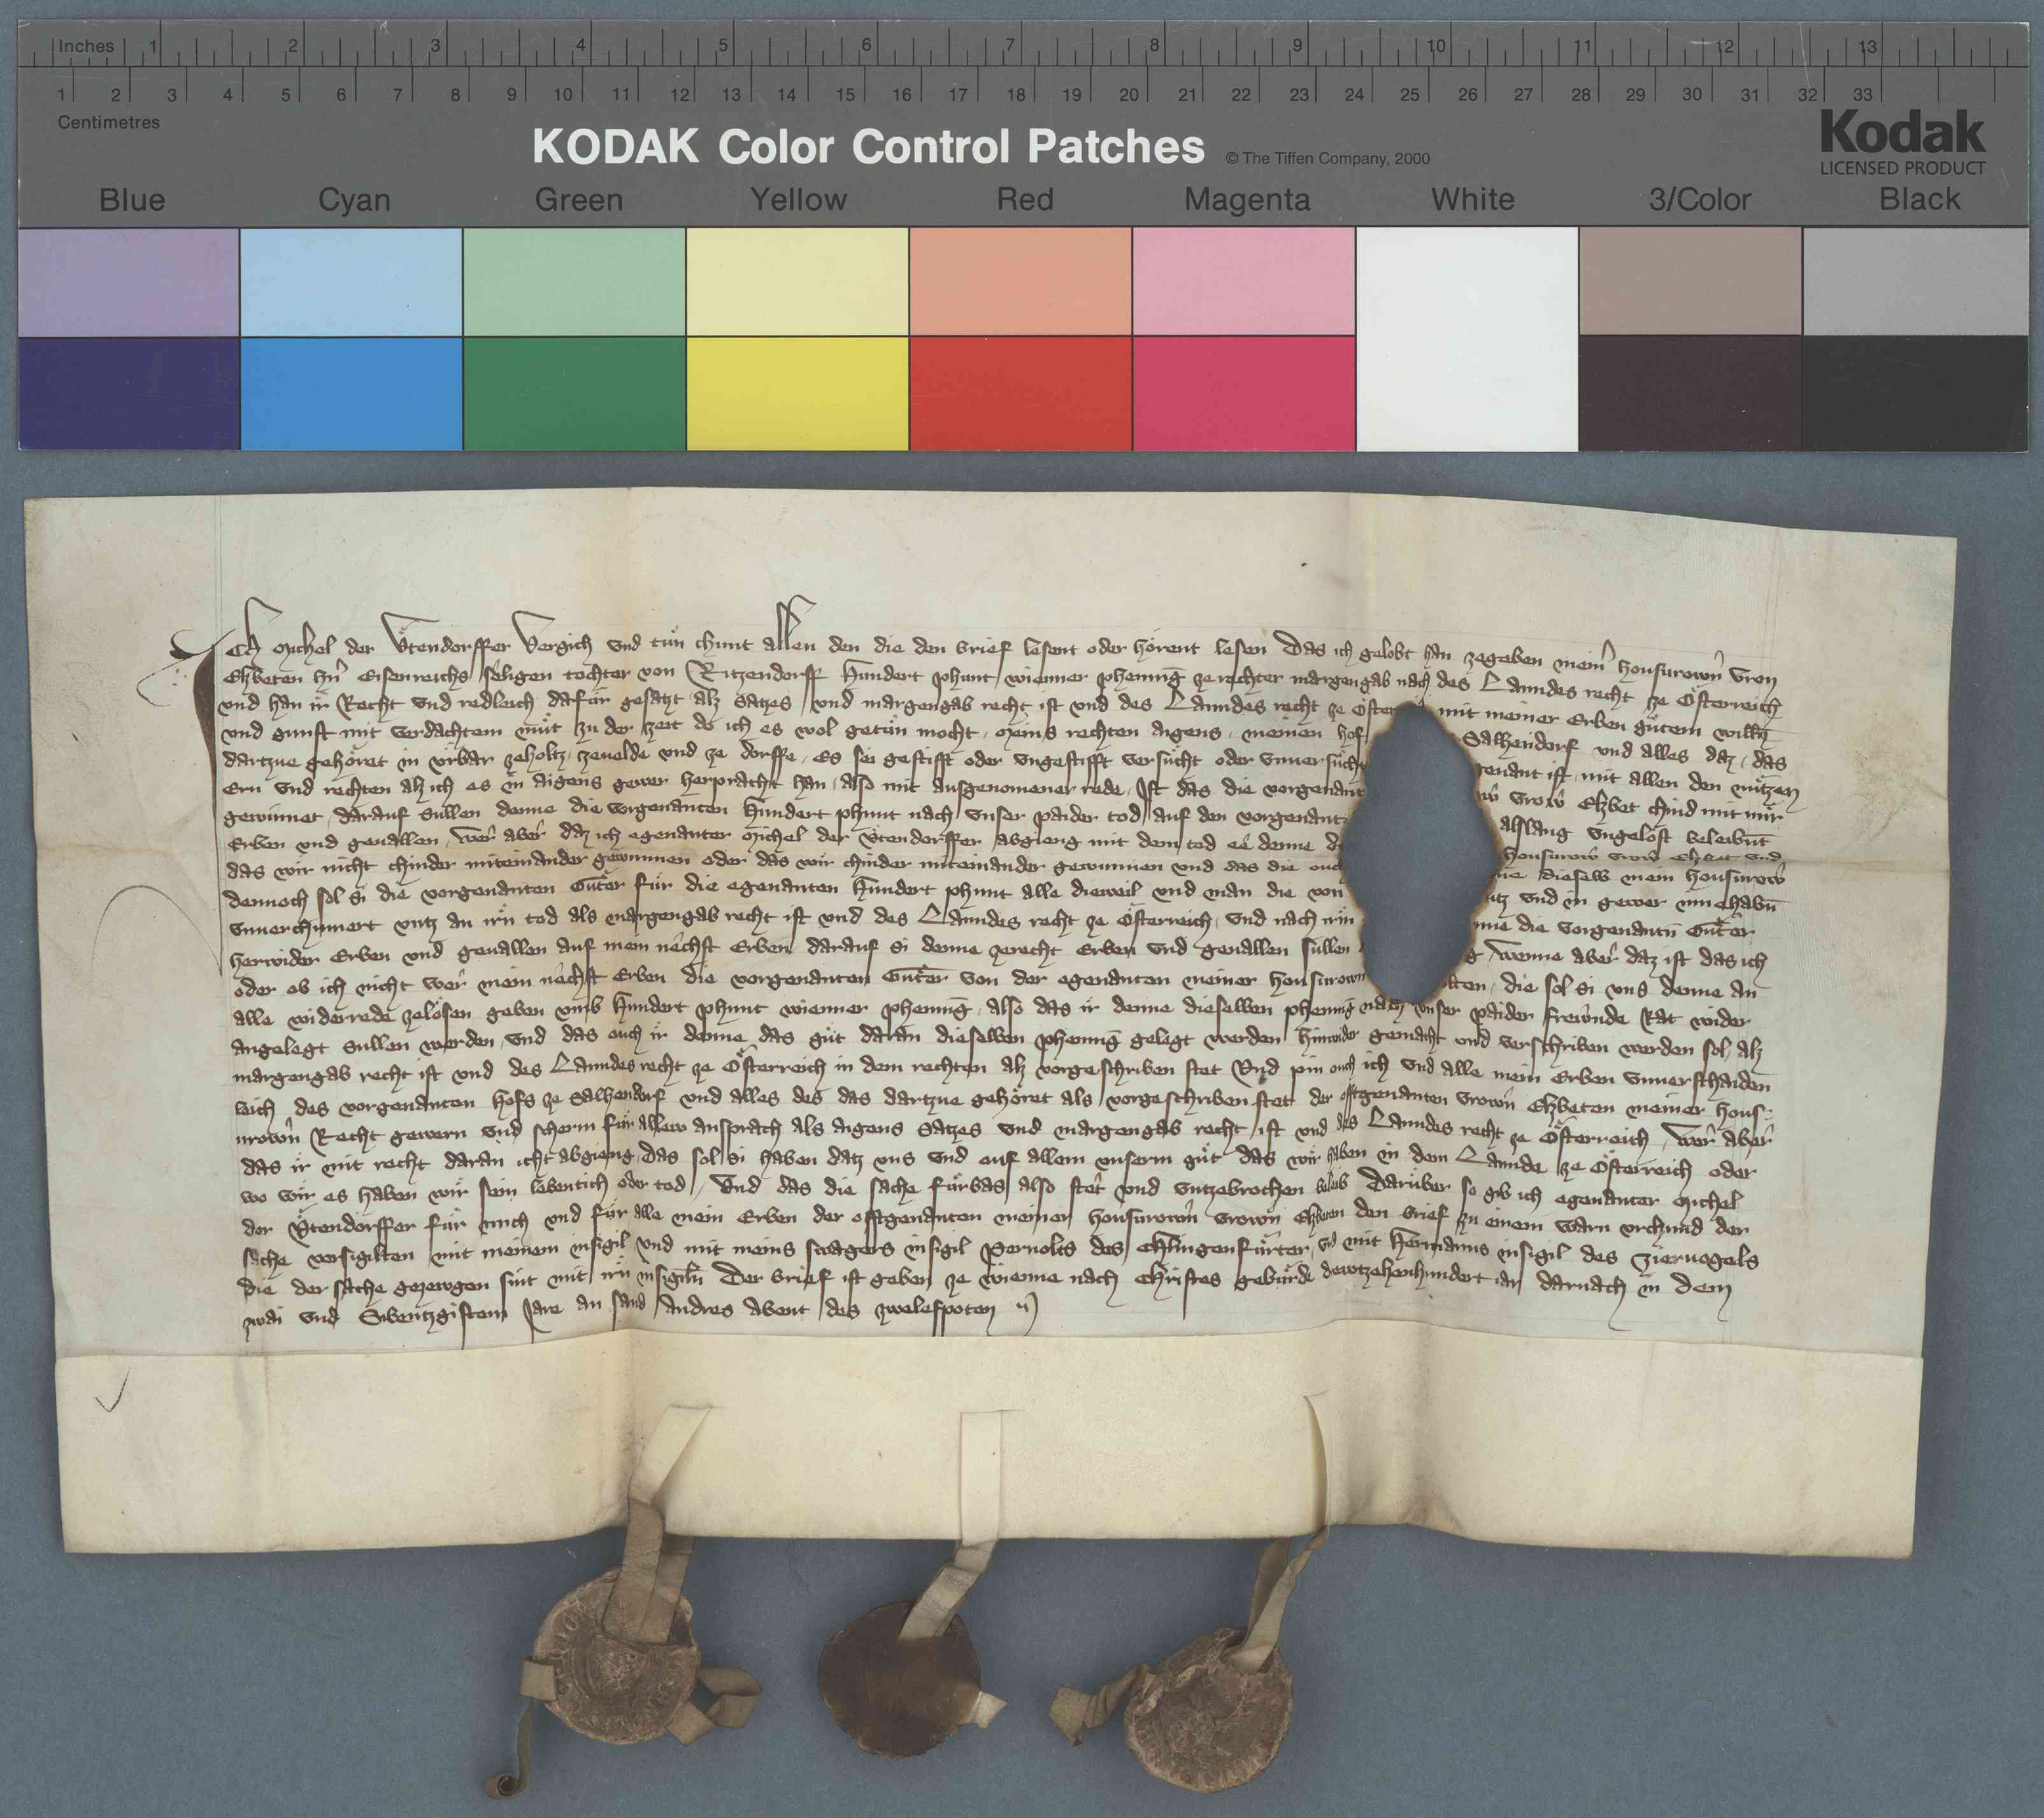 Inches 1 2 3 4 5 6 7 8 9 10 11 12 13
1 2 3 4 5 6 7 8 9 10 11 12 13 14 15 16 17 18 19 20 21 22 23 24 25 26 27 28 29 30 31 32 33
Centimetres
KODAK Color Control Patches © The Tiffen Company, 2000
Kodak
LICENSED PRODUCT
Blue Cyan Green Yellow Red Magenta White 3/Color Black
Ich Michel der Vͤtendorffer Vergich vnd tuͤn chunt allen den die den brief lesent oder hoͤrent lesen Das ich gelobt han zegeben meinr housurowñ vron
Elzbeten hñ Eisenreichs seligen tochter von Ritzendorff Hundert phunt wienner phennig ze rechter margengab nach des Lanndes recht ze Oͤsterreich
vnd han ir Recht vnd redleich dafuͤr gesatzt alz Satzes vnd margengab recht ist vnd des Lanndes recht ze Oͤster mit meiner Erben guͤtem willn
vnd gunst mit verdachtem muͤt zu der zeit do ich es wol getuͤn mocht meins rechten aigens meinen hof Salhendorf vnd alles daz das
dartzue gehoͤret in vrbar zeholtz zeuelde vnd ze dorffe Es sei gestifft oder vngestifft versuͤcht oder vnuersuͤcht genant ist mit allen den nuͤtzen
Ern vnd rechten alz ich es in aigens gewer herpracht han also mit ausgenomener rede Ist das die vorgenant vrow Elzbet chind mit mir
gewinnet darauf Sullen denne die vorgenanten Hundert phunt nach vnser paider tod auf den vorgenant alslang vngelost beleibnt
Erben vnd geuallen wer aber daz ich egenanter Michel der Vͤtendorffer abgieng mit dem tod ee denne housurow vrow Elzbet vnd
das wir nicht chinder miteinander gewunnen oder das wir chinder miteinander gewunnen vnd das die dieselb mein housurow
dennoch sol si die vorgenanten Guͤter fuͤr die egenanten Hundert phunt alle dieweil vnd man die von vnd in gewer innehabñ
vnuerchumert vntz an irn tod als margengab recht ist vnd des Lanndes recht ze Oͤsterreich vnd nach irm die vorgenantñ Guͤter
herwider Erben vnd geuallen auf mein nechst Erben darauf si denne zerecht Erben vnd geuallen sullen wenne aber daz ist das ich
oder ob ich nicht wer mein nechst Erben die vorgenanten Guͤter von der egenanten meiner housurown die sol si vns denne an
alle widerrede zeloͤsen geben vmb Hundert phunt wienner phennig also das ir denne dieselben phennig nach vnser paider frewnde Rat wider
angelegt sullen werden vnd das ouch ir denne das guͤt daran dieselben phennig gelegt werden hinwider gemacht vnd verschriben werden sol alz
margengab recht ist vnd des Lanndes recht ze Oͤsterreich in dem rechten alz vorgeschriben stet Vnd pin ouch ich vnd alle mein Erben vnuerschaiden
leich des vorgenanten hofs ze Salhendorf vnd alles des das dartzue gehoͤret als vorgeschriben stet der offtgenanten vrown Elzbeten meiner hous
urown Recht gewern vnd scherm fuͤr allew ansprach als aigens Satzes vnd margengab recht ist vnd des Lanndes recht ze Oͤsterreich wer aber
das ir mit recht daran icht abgieng das sol si haben datz vns vnd auf allem vnserm guͤt das wir haben in dem Lannde ze Oͤsterreich oder
wo wir es haben wir sein lebentich oder tod Vnd das die sache fuͤrbas also stet vnd vntzebrochen beleib Daruͤber so gib ich egenanter Michel
der Vͤtendorffer fuͤr mich vnd fuͤr alle mein Erben der offtgenanten meiner housurown vrown Elzbeten den brief zu einem warn vrchund der
sache versigilten mit meinem insigil vnd mit meins swagers insigil Pernolts des Chlingenfuͤrter vnd mit Hermanns insigil des Ziernogels
die der sache gezewgen sint mit irn insigiln Der brief ist geben ze wienne nach Christes gebuͤrde drewtzehenhundert iar darnach in dem
zwai vnd Sibentzgistem Jare an sand Andres Abent des zwelefpoten